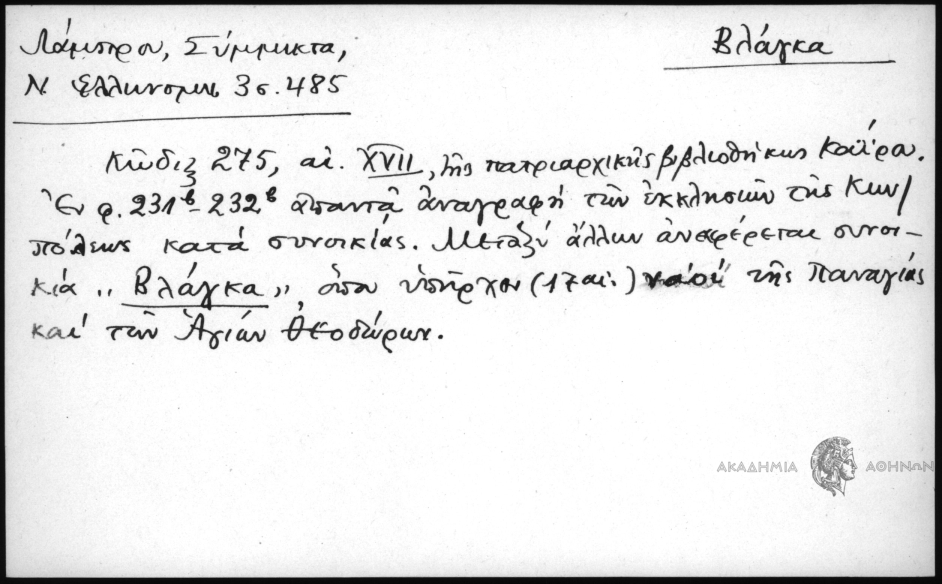 Λάμπρου, Σύμμικτα,
Βλάγκα
Ν. Ελληνομν. 3 σ. 485
Κῶδιξ 275, αἰ. XVII, τῆς πατριαρχικῆς βιβλιοθήκης Καΐρου.
Ἐν φ. 231β-232β ἀπαντᾷ ἀναγραφὴ τῶν ἐκκλησιῶν τῆς Κων/
πόλεως κατὰ συνοικίας. Μεταξὺ ἄλλων ἀναφέρεται συνοι-
κία „Βλάγκα", ὅπου ὑπῆρχον (17 αἰ.) ναοὶ τῆς Παναγίας
καὶ τῶν Ἁγίων Θεοδώρων.
ΑΚΑΔΗΜΙΑ ΑΘΗΝΩΝ